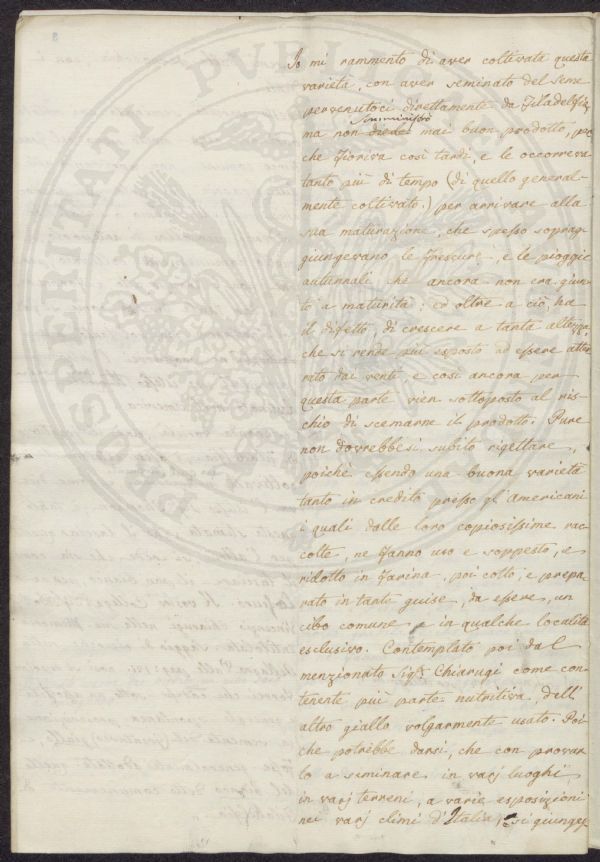 Io mi rammento di aver coltivata questa
varietà, con aver seminato del seme
pervenutoci direttamente da Filadelfia,
somministrò
ma non diedei mai buon prodotto, poi
che fioriva così tardi, e le occorreva
tanto più di tempo (di quello general-
mente coltivato.) per arrivare alla
sua maturazione, che spesso soprag-
giungevano le frescure, e le pioggie
autunnali, che ancora non era giun-
to a maturità: ed oltre a ciò, ha
il difetto, di crescere a tanta altezza,
che si rende più esposto ad essere atter-
rato dai venti, e così ancora per
questa parte vien sottoposto al ris-
chio di scemarne il prodotto. Pure
non dovrebbesi subito rigettare,
poichè essendo una buona varietà
tanto in credito presso gl'Americani
i quali dalle loro copiosissime rac-
colte, ne fanno uso e soppesto, e
ridotto in farina, poi cotto, e prepa-
rato in tante guise, da essere, un
cibo comune e in qualche località
esclusivo. Contemplato poi dal
menzionato Sigr. Chiarugi come con-
tenente più parte nutritiva, dell'
altro giallo volgarmente usato. Poi
che potrebbe darsi, che con provar-
lo a seminare in varj luoghi
in varj terreni, a varie esposizioni
nei varj climi d'Italia, si giunges
PROSPERITATI PUBLICAE